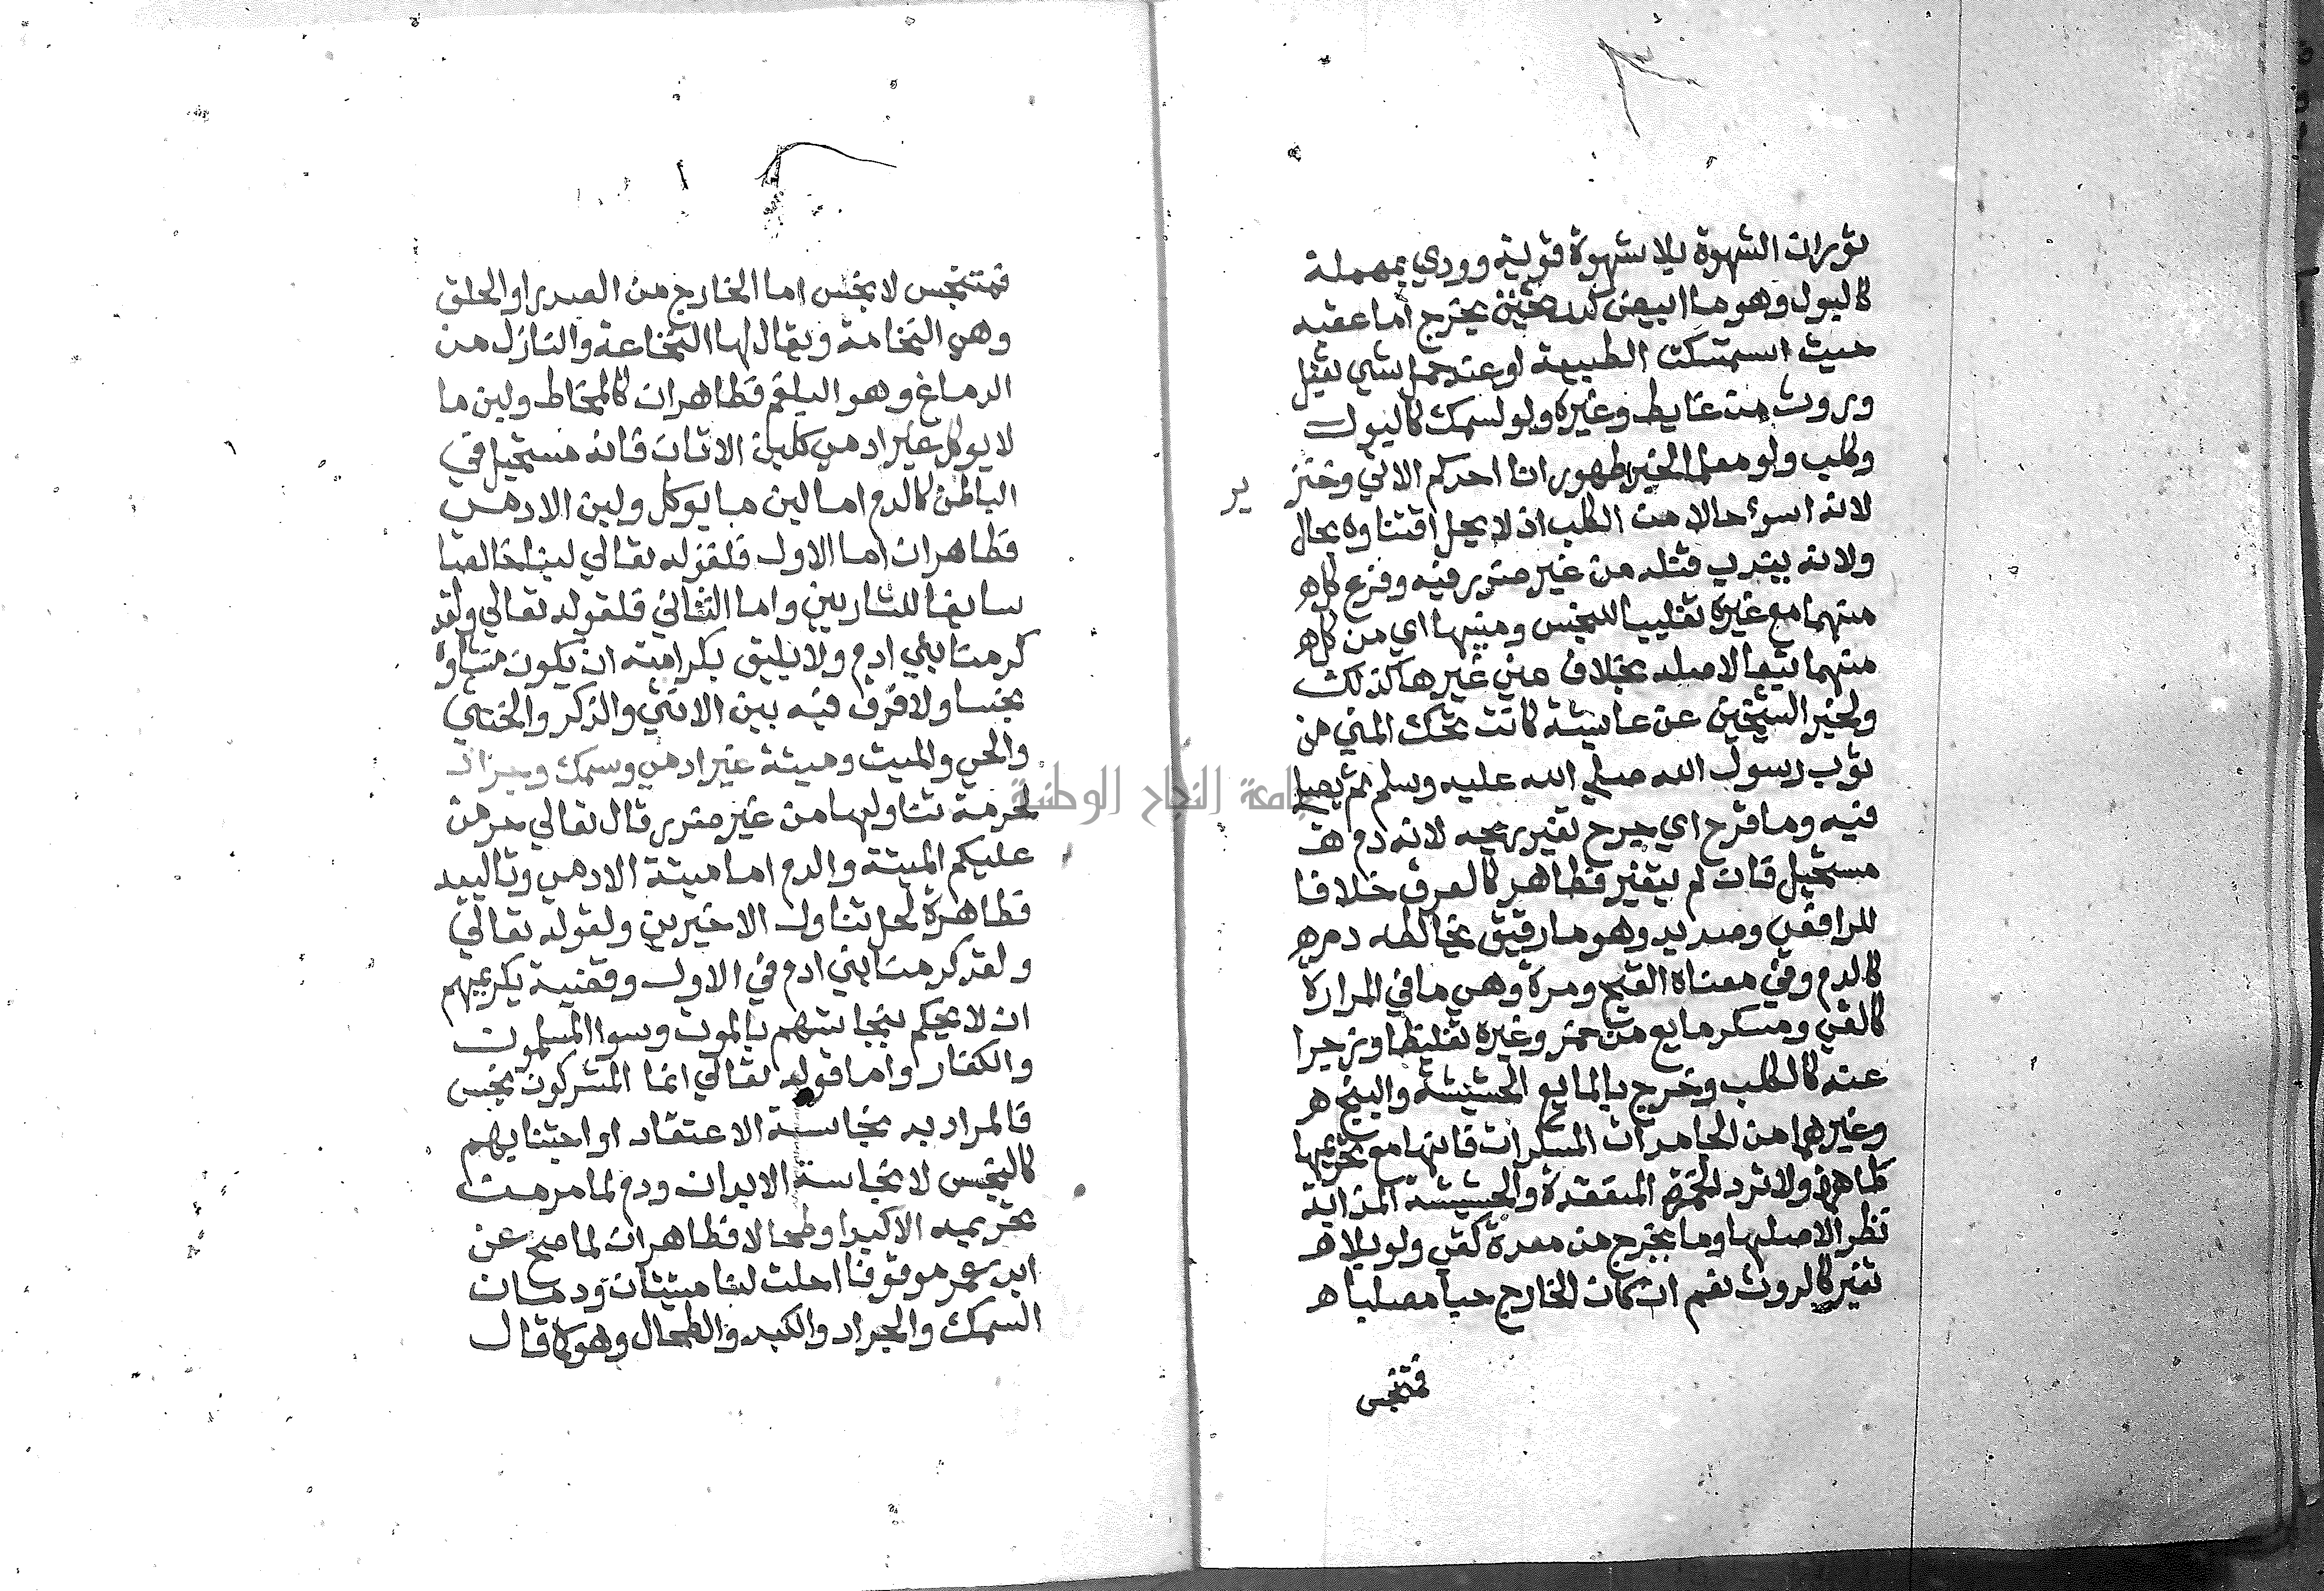 ثوران الشهوة بلا شهوة قوية وودي بمهملة
كالبول وهو ما ابيض كدر ثخين يخرج اما عقبه
حيث استمسكت الطبيعة او عند حمل شي ثقيل
وروث من غايط وغيره ولو لسمك كالبول
وكلب ولو معلما لخبر طهور انا احدكم الاتي وخنز
ير
لانه اسوء حالا من الكلب اذ لا يحل اقتناوه بحال
ولانه يندب قتله من غير ضرر فيه وفرع كل ه
منهما مع غيره تغليبا للنجس ومنيها اي من كل ه
منهما تبعا لاصله بخلاف مني غيرها كذلك
ولخبر الشيخين عن عايشة كانت تحك المني من
ثوب رسول الله صلي الله عليه وسلم ثم يصلي
فيه وما قرح اي جرح تغير ريحه لانه دم ه
مستحيل فان لم يتغير فطاهر كالعرق خلافا
للرافعي وصديد وهو ما رقيق يخالطه دم ه
كالدم وفي معناه القيح ومرة وهي ما في المرارة
كالقي ومسكر مايع من خمر وغيره تغليظا وزجرا
عنه كالكلب وخرج بالمايع الحشيشة والبنج ه
وغيرهما من الجامدات المسكرات فانها مع تحريمها
طاهرة ولا ترد الخمرة المنعقدة والحشيشة المذابة
نظر الاصلها وما يخرج من معدة كقي ولو بلا ه
تغير كالروث نعم ان كان الخارج حبا صلبا ه
فمتنجس
فمتنجس لا نجس اما الخارج من الصدر او الحلق
وهي النخامة ويقال لها النخاعة والنازل من
الدماغ وهو البلغم فطاهران كالمخاط ولبن ما
لا يوكل غير ادمي كلبن الاتان فانه مستحيل في
الباطن كالدم اما لبن ما يوكل ولبن الادمي
فطاهران اما الاول فلقوله تعالي لبنا خالصا
سايغا للشاربين واما الثاني فلقوله تعالي ولقد
كرمنا بني ادم ولا يليق بكرامته ان يكون منشاوه
نجسا ولا فرق فيه بين الانثي والذكر والخنثي
والحي والميت وميتة غير ادمي وسمك وجراد
لحرمة تناولها من غير ضرر قال تعالي حرمت
عليكم الميتة والدم اما ميتة الادمي وتالييه
فطاهرة لحل تناول الاخيرين ولقوله تعالي
ولقد كرمنا بني ادم في الاول وقضية تكريمهم
ان لا يحكم بنجاستهم بالموت وسوا المسلمون
والكفار واما قوله تعالي انما المشركون نجس
فالمراد به نجاسة الاعتقاد او اجتنابهم
كالنجس لا نجاسة الابدان ودم لما مر من
تحريمه الا كبدا وطحالا فطاهران لما صح عن
ابن عمر موقوفا احلت لنا ميتتان ودمان
السمك والجراد والكبد والطحال وهو كما قال
جامعة النجاح الوطنية